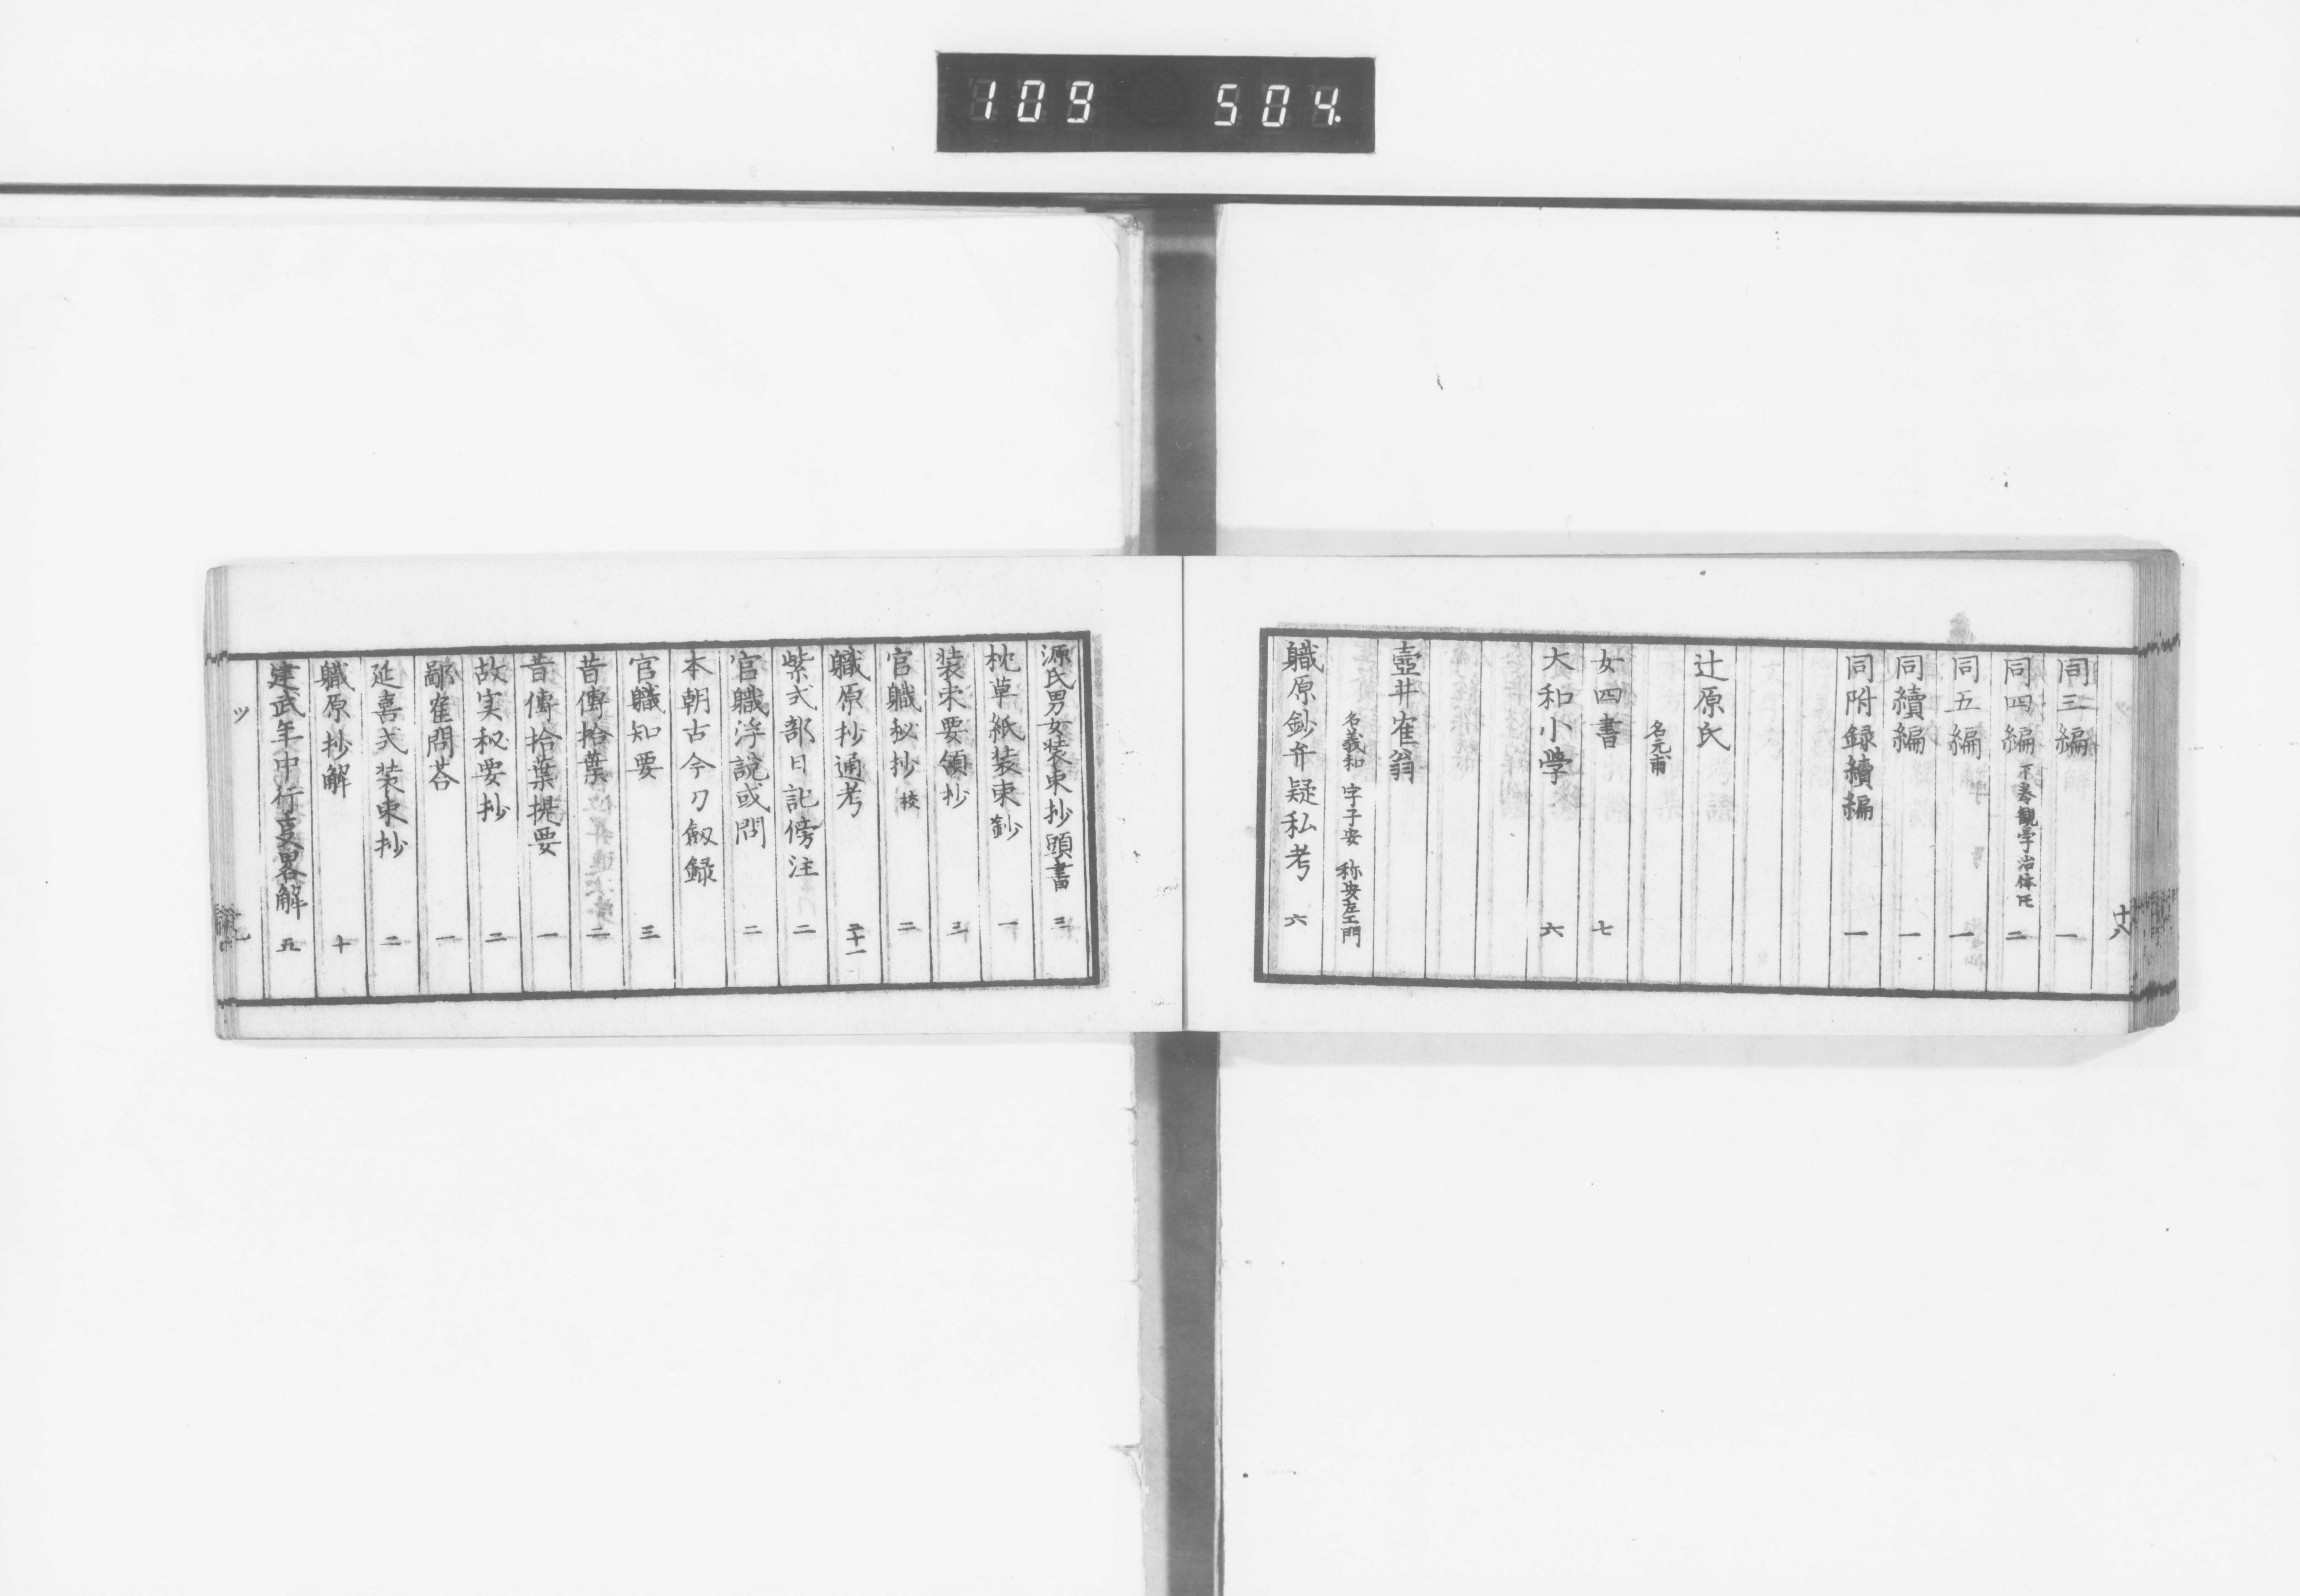 109 504.
十八
同三編 一
同四編 下巻観学治体 二
同五編 一
同續編 一
同附録續編 一
辻原氏
名元甫
女四書 七
大和小学 六
壺井寉翁
名義和 字子安 称安左エ門
職原鈔弁疑私考 六
源氏男女装束抄頭書 三
枕草紙装束鈔 一
装束要領抄 三
官職秘抄 校 二
職原抄通考 二十一
紫式部日記傍注 二
官職浮說或問 二
本朝古今刀劔録
官職知要 三
昔傳拾葉 二
昔傳拾葉提要 一
故実秘要抄 二
鄙寉問荅 一
延喜式装束抄 二
職原抄解 十
建武年中行夏畧解 五
ツ